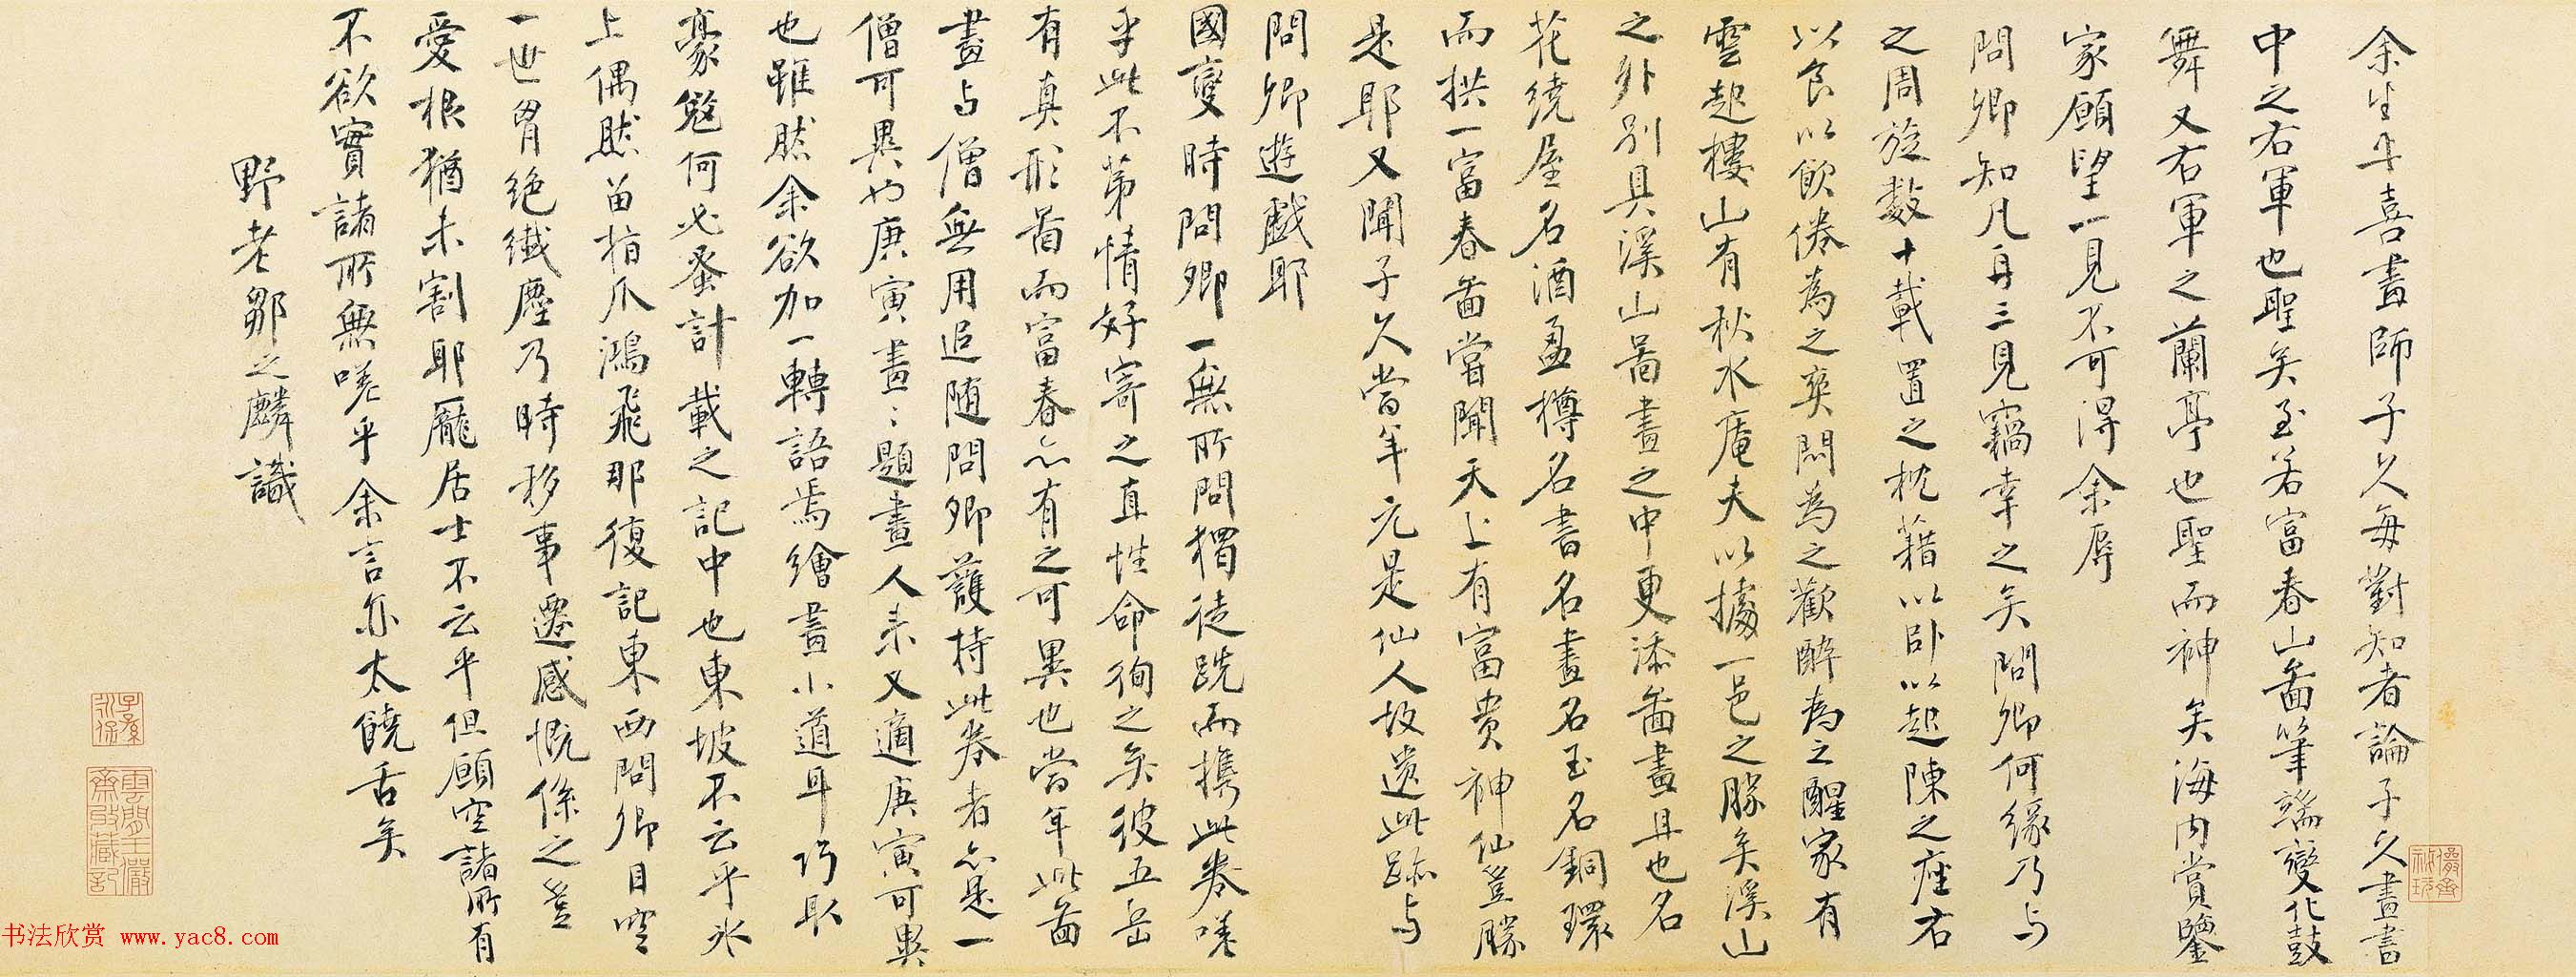 余生平喜畫師子久每對知者論子久畫書
中之右軍也聖矣至若富春山啚筆端變化鼓
舞又右軍之蘭亭也聖而神矣海内賞鑒
家願望一見不可得余辱
問卿知凡再三見竊幸之矣問卿何緣乃与
之周旋数十載置之枕藉以卧以起陳之座右
以食以飲倦為之爽悶為之歡醉為之醒家有
雲起樓山有秋水庵夫以據一邑之勝矣溪山
之外別具溪山啚畫之中更添啚畫且也名
花繞屋名酒盈樽名書名畫名玉名銅環
而拱一富春啚嘗聞天上有富貴神仙豈勝
是耶又聞子久當年元是仙人故遺此跡与
問卿遊戯耶
國變時問卿一無所問獨徒跣而攜此卷嗟
乎此不第情好寄之直性命徇之矣彼五岳
有真形啚而富春亦有之可異也當年此啚
畫与僧無用追随問卿護持此卷者亦是一
僧可異也庚寅畫畫題畫人来又適庚寅可異
也雖然余欲加一轉語焉繪畫小道耳巧取
豪敓何必蚤計載之記中也東坡不云乎氷
上偶然留指爪鴻飛那復記東西問卿目空
一世胷絶纎塵乃時移事遷感慨係之豈
愛根猶未割耶龐居士不云乎但願空諸所有
不欲實諸所無嗟乎余言亦太饒舌矣
野老鄒之麟識
子孫永保
雲間王儼齋收藏記
儼齋秘玩
书法欣赏 www.yac8.com